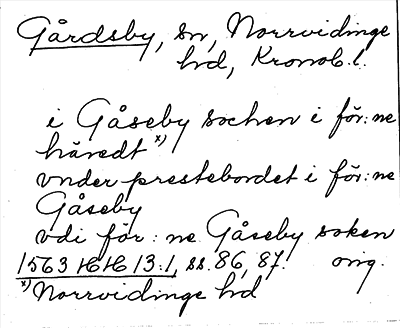 Gårdsby, sn, Norrvidinge
hd, Kronob. l.
i Gåseby sochen i för:ne
häredt x)
vnder prestebordet i för:ne
Gåseby
vdi för:ne Gåseby soken
1563 HH 13:1, ss. 86, 87. orig.
x) Norrvidinge hd